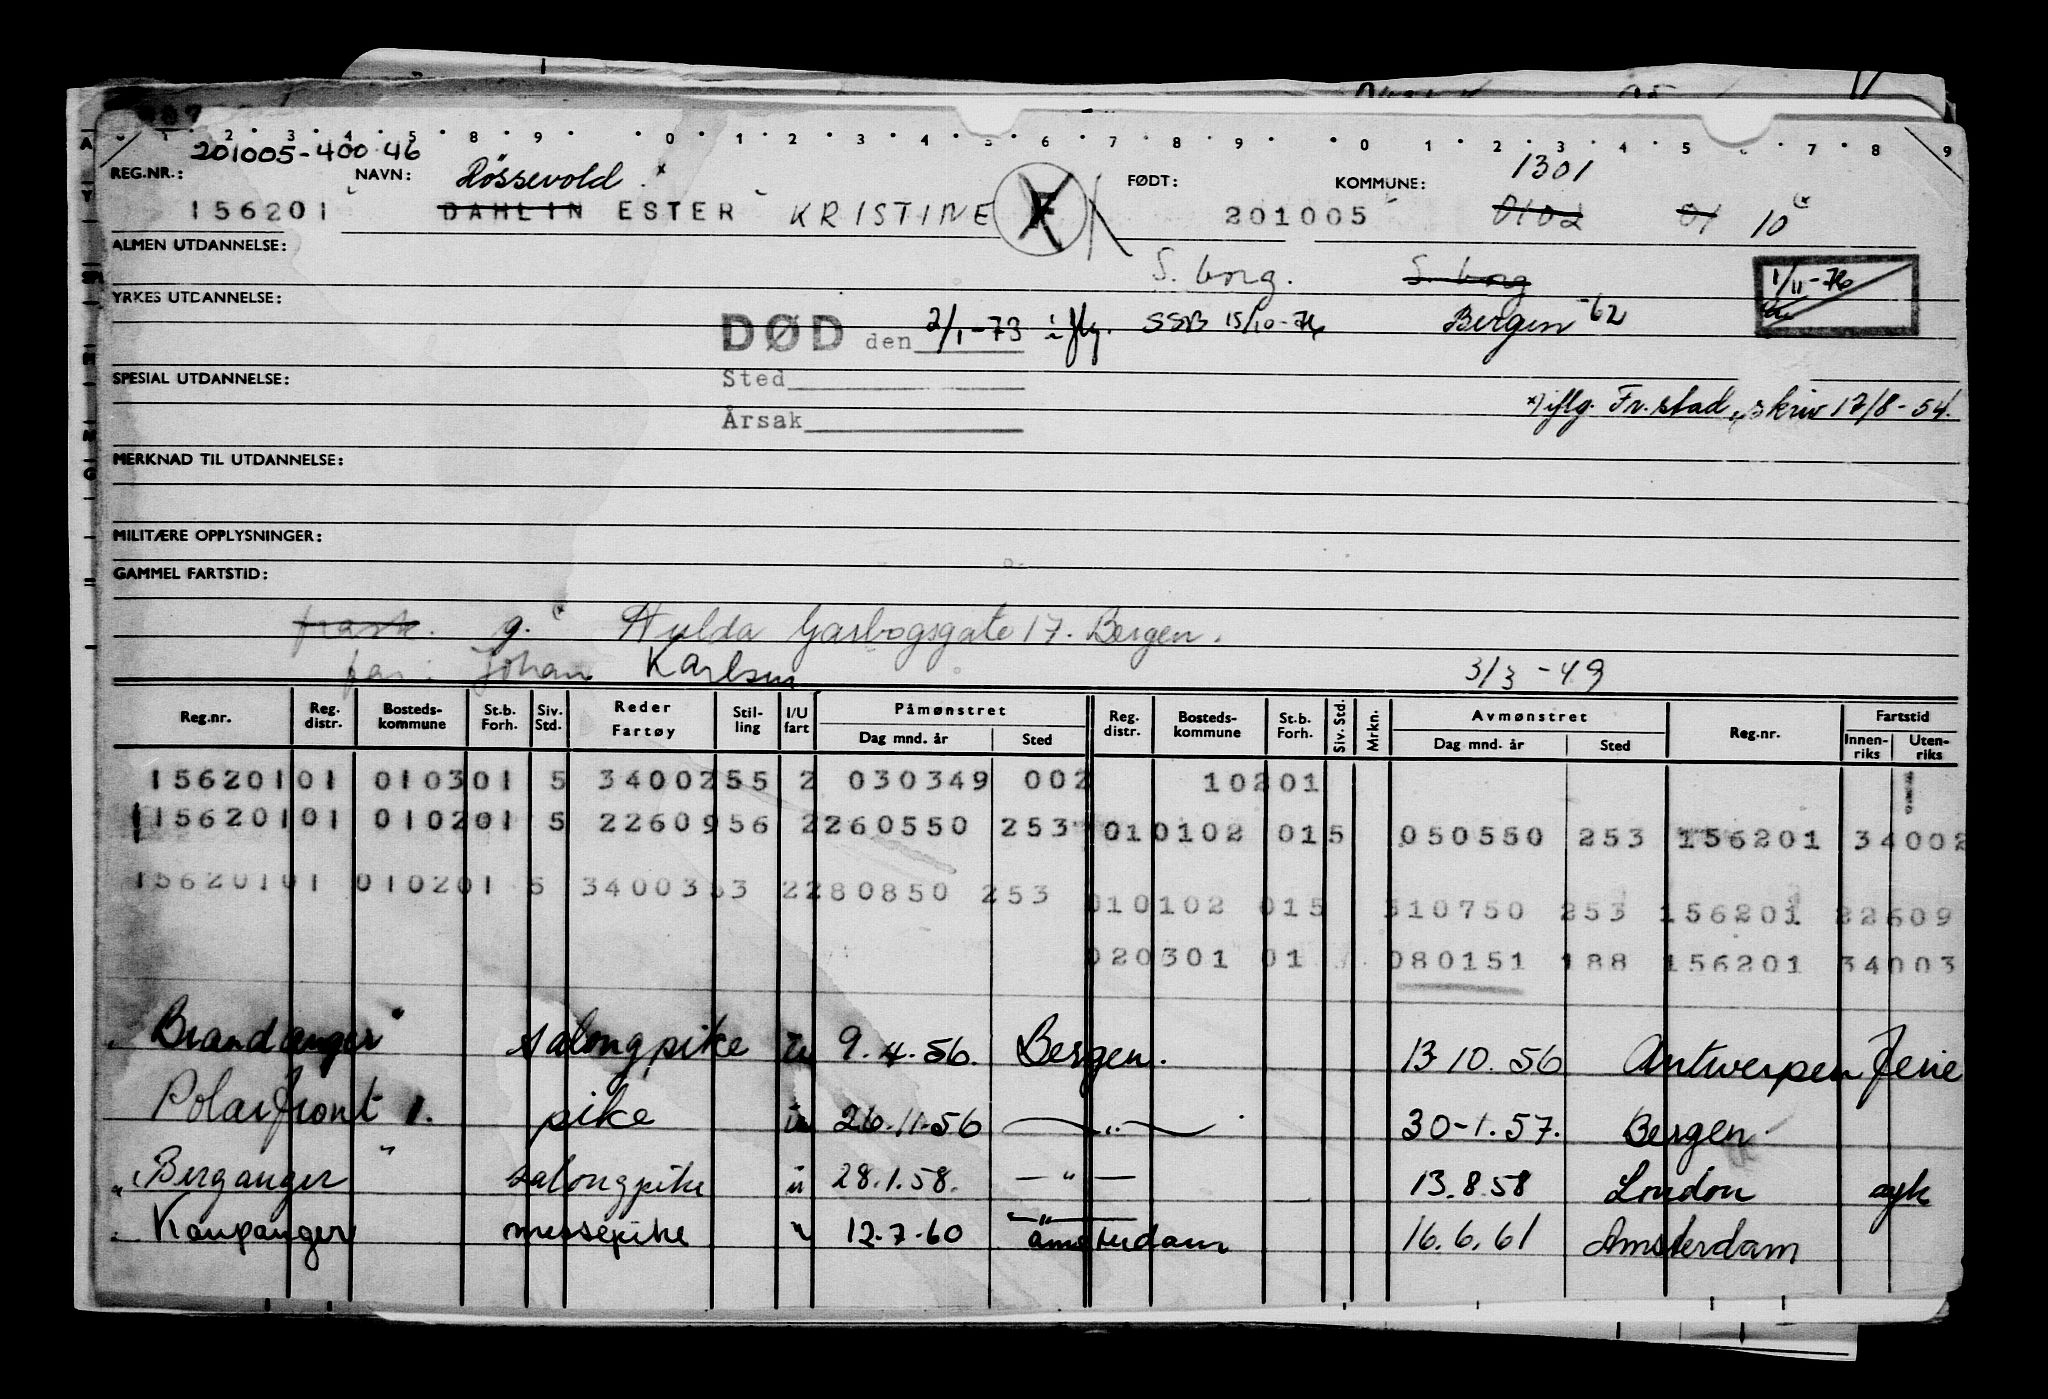 201005-400 46
REG.NR.: NAVN: Røssevold FØDT: KOMMUNE: 1301
156201 DAHLIN ESTER KRISTINE 201005 0102 01 10
ALMEN UTDANNELSE:
S. borg. S. borg
1/11-76
YRKES UTDANNELSE:
DØD den 2/1-73 iflg. SSB 15/10-76 Bergen -62
SPESIAL UTDANNELSE: Sted
x) iflg. Fr.stad, skriv 17/8-54.
Årsak
MERKNAD TIL UTDANNELSE:
MILITÆRE OPPLYSNINGER:
GAMMEL FARTSTID:
frask. g. Hulda Garborgsgate 17. Bergen.
far: Johan Karlsen 3/3-49
Reg.nr. Reg. distr. Bosteds-kommune St.b. Forh. Siv. Std. Reder Fartøy Stil-ling I/U fart Påmønstret Dag mnd. år Sted Reg. distr. Bosteds-kommune St.b. Forh. Siv. Std. Mrkn. Avmønstret Dag mnd. år Sted Reg.nr. Fartstid Innen-riks Uten-riks
156201 01 0103 01 5 34002 55 2 030349 002 10201
156201 01 0102 01 5 22609 56 2 260550 253 01 0102 01 5 050550 253 156201 34002
156201 01 0102 01 5 34003 53 2 280850 253 01 0102 01 5 310750 253 156201 22609
02 0301 01 080151 188 156201 34003
Brandanger salongpike u 9.4.56. Bergen. 13.10.56 Antwerpen ferie
Polarfront 1. pike u 26.11.56 — " — 30-1.57. Bergen
" Berganger salongpike u 28.1.58. — " — 13.8.58 London avk
Kaupanger messepike " 12.7.60 — " — Amsterdam 16.6.61 Amsterdam